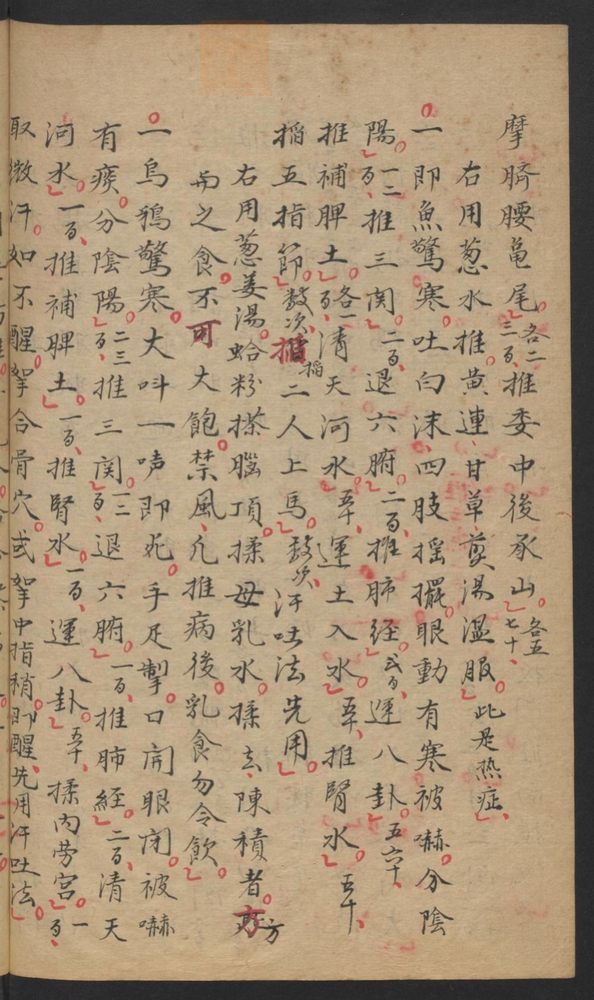 摩臍腰龟尾各二三百推委中後承山各五七十
右用葱水推黄連甘草煎湯温服此是热症
一即魚驚寒吐白沫四肢摇擺眼動有寒被嚇分陰
陽一二百推三関二百退六腑二百推肺経弍百運八卦五六十
推補脾土各一百清天河水五十運土入水五十推腎水五十
搯五指節数次搯二人上馬数次汗吐法先用
右用葱姜湯蛤粉搽腦頂揉母乳水揉去陳積者方
与之食不可大飽禁風凢推病後乳食勿令飲
一烏鴉驚寒大呌一声即死手足掣口開眼闭被嚇
有痰分陰陽二三百推三関一二百退六腑一百推肺経二百清天
河水一百推補脾土一百推腎水一百運八卦五十揉内劳宫一百
取微汗如不醒拏合骨穴或拏中指稍即醒先用汗吐法